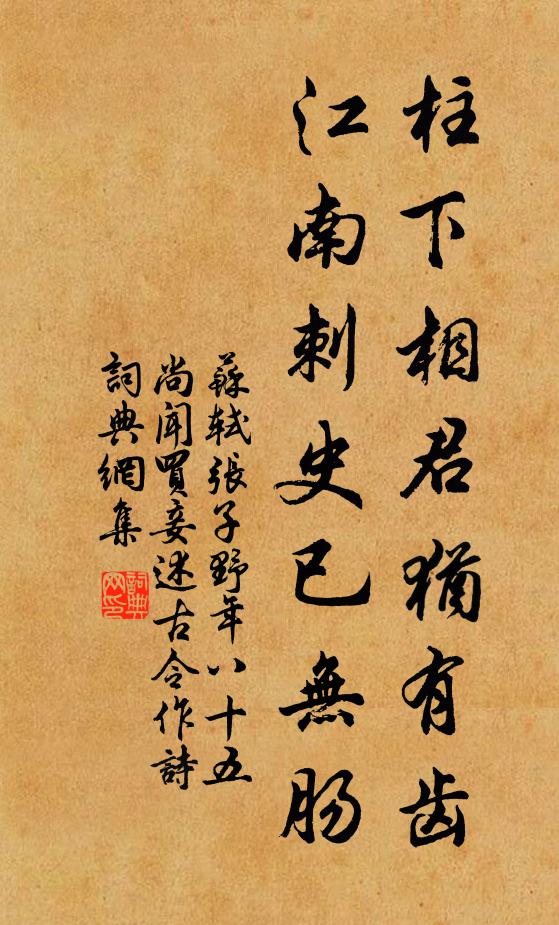 柱下相君猶有齿
江南刺史已無肠
蘇軾張子野年八十五
尚闻買妾述古令作詩
詞典網集
詞典网印